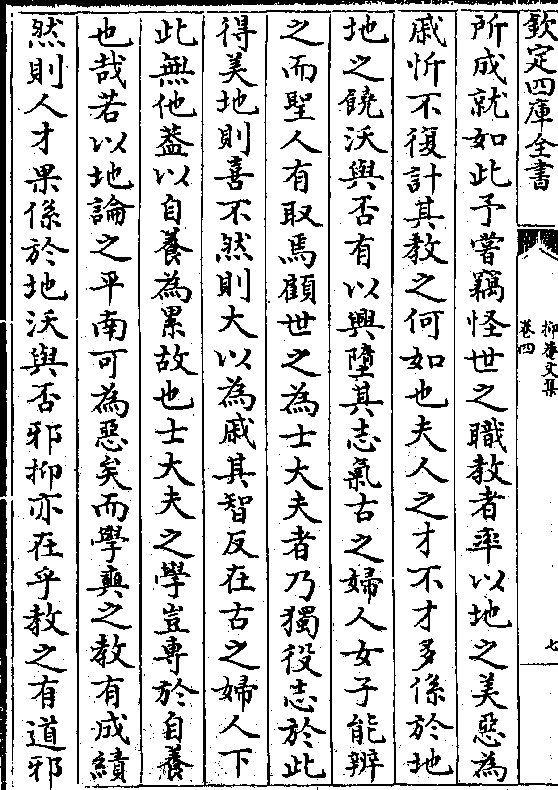 欽定四庫全書
抑菴文集
卷四
七
所成就如此予嘗竊怪世之職教者率以地之美惡為
戚忻不復計其教之何如也夫人之才不才多係於地
地之饒沃與否有以興墮其志氣古之婦人女子能辨
之而聖人有取焉顧世之為士大夫者乃獨役志於此
得美地則喜不然則大以為戚其智反在古之婦人下
此無他葢以自養為累故也士大夫之學豈專於自養
也哉若以地論之平南可為惡矣而學奭之教有成績
然則人才果係於地沃與否邪抑亦在乎教之有道邪